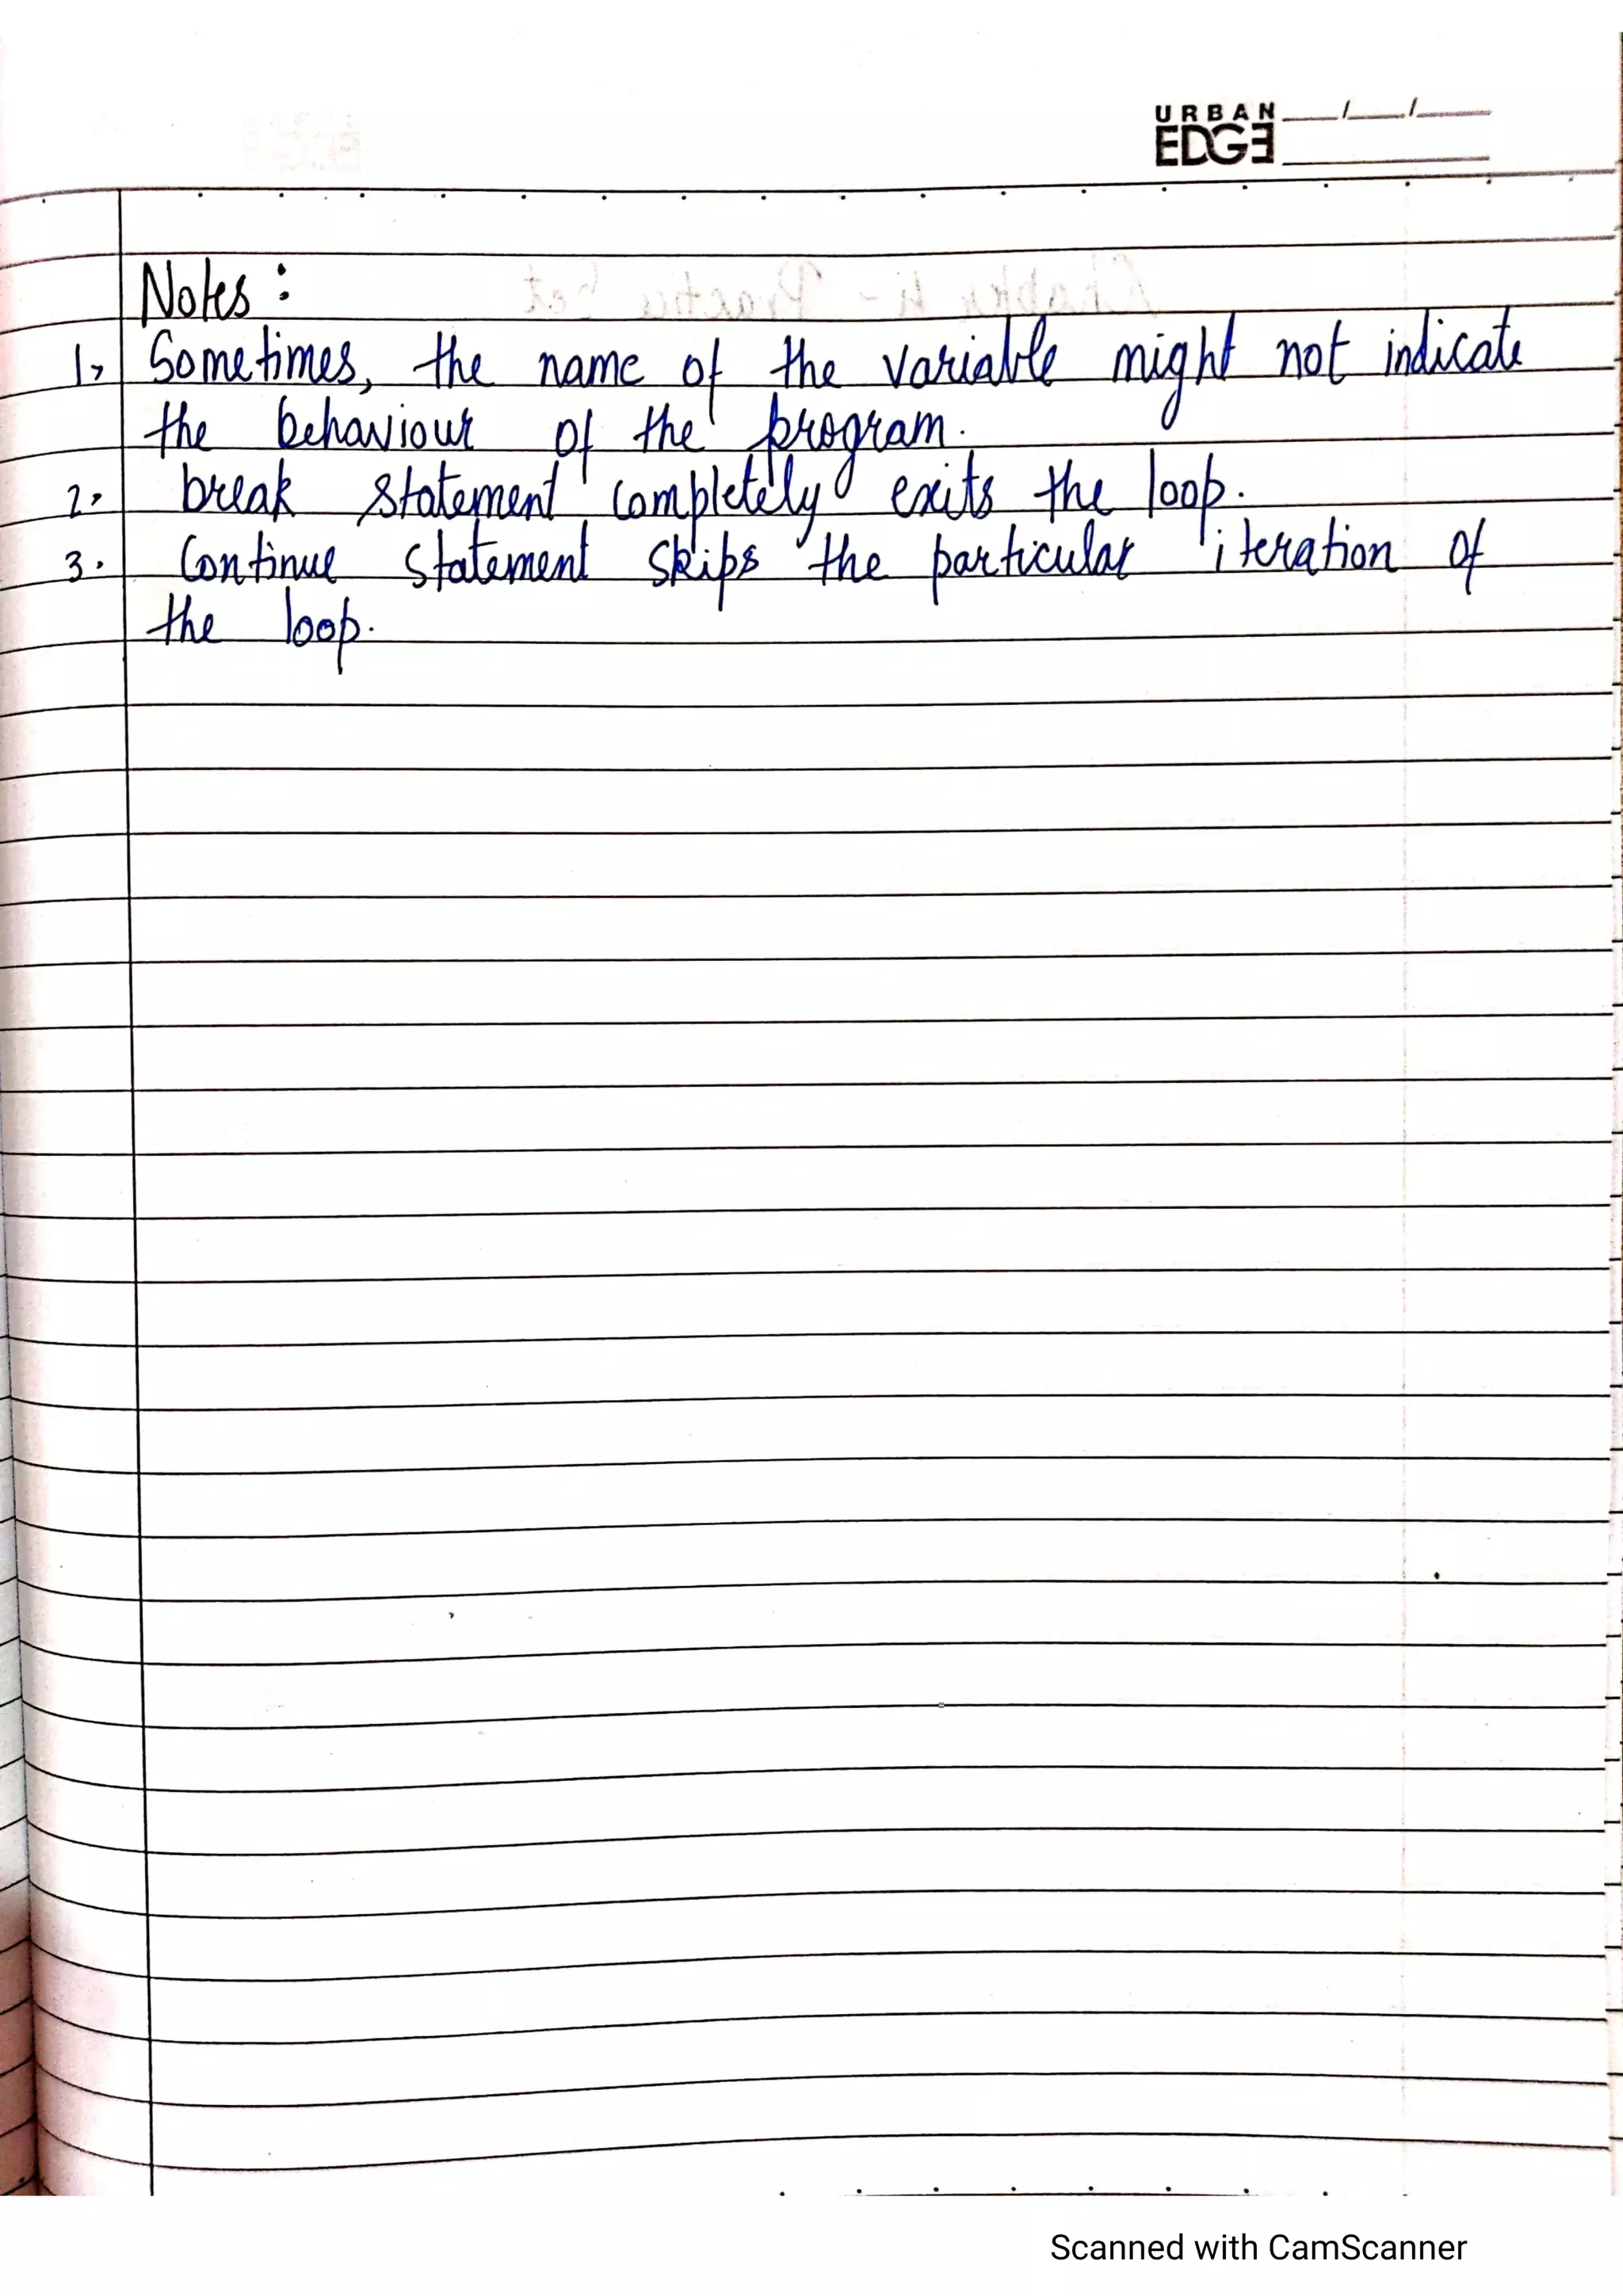 URBAN
EDGE
Notes :
1, Sometimes, the name of the variable might not indicate
the behaviour of the program.
2, break statement completely exits the loop.
3. Continue statement skips the particular iteration of
the loop.
Scanned with CamScanner